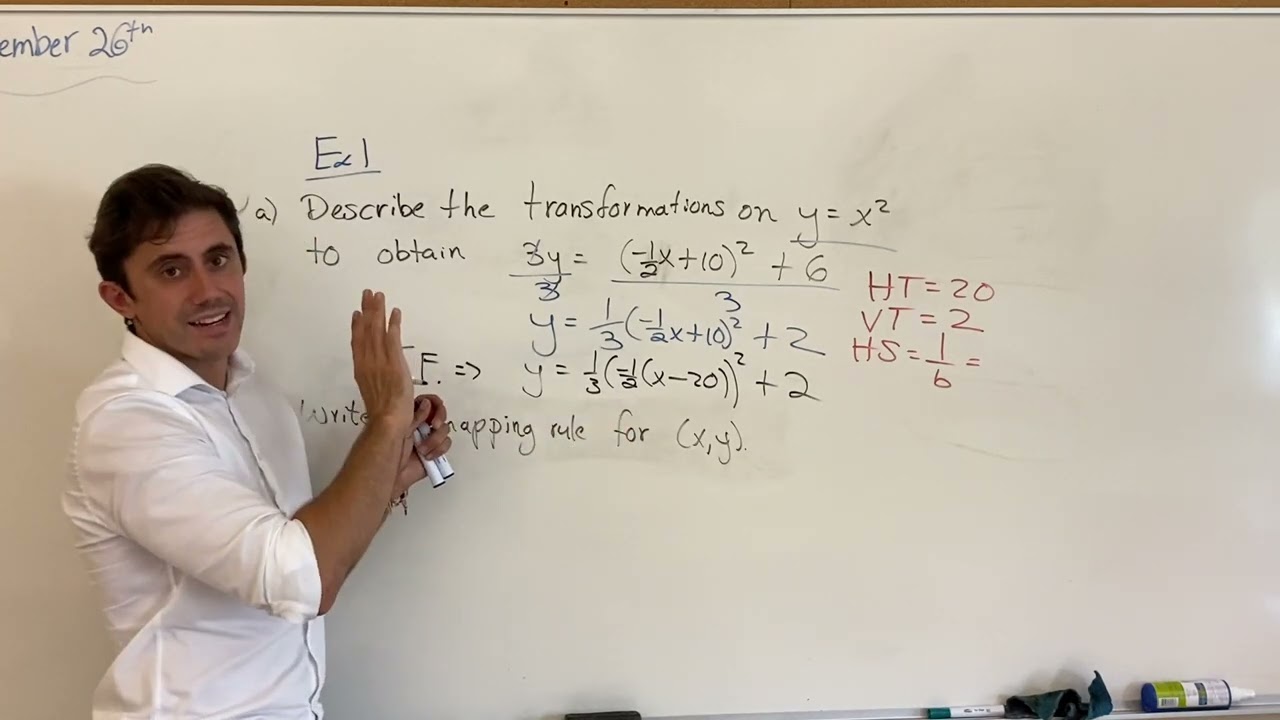 ember 26th
Ex 1
a) Describe the transformations on y = x²
to obtain 3y/3 = ((-1/2x+10)² + 6)/3
y = 1/3(-1/2x+10)² + 2
F. => y = 1/3(-1/2(x-20))² + 2
Write mapping rule for (x,y).
HT = 20
VT = 2
HS = 1/b =